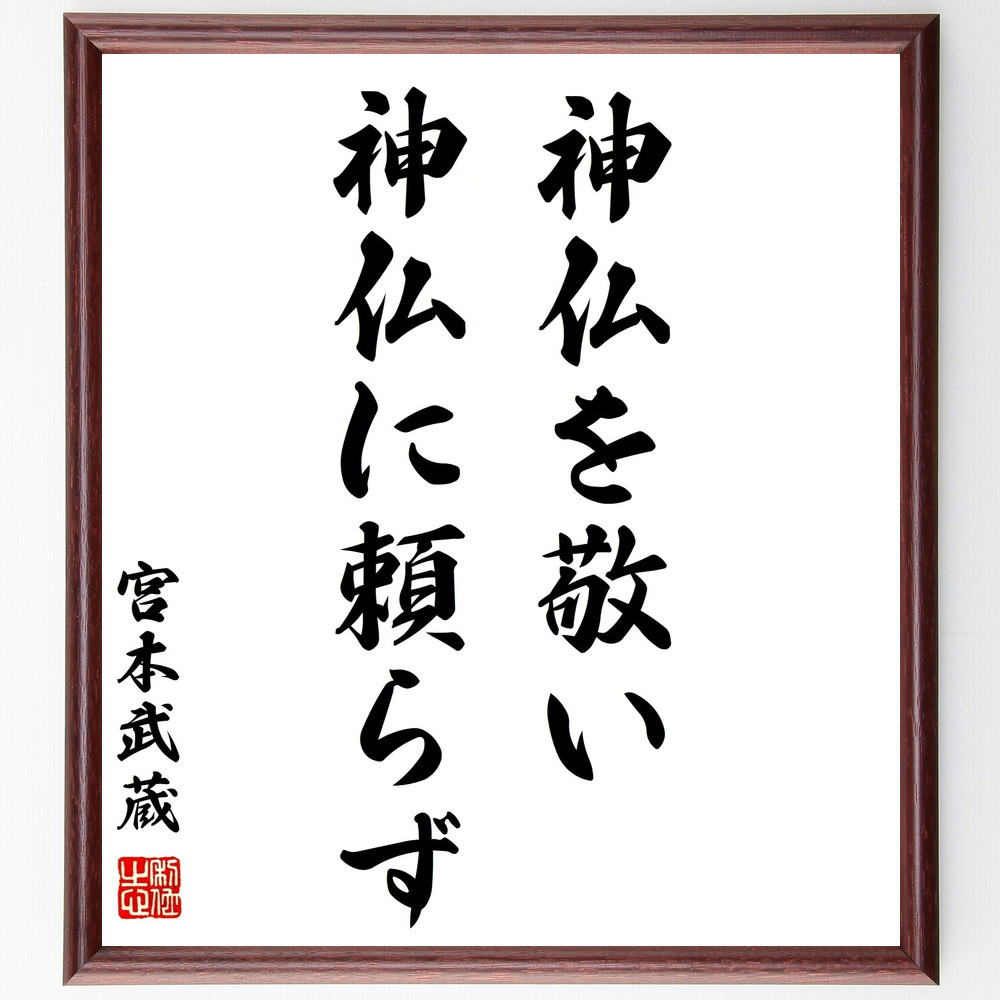 神仏を敬い
神仏に頼らず
宮本武蔵